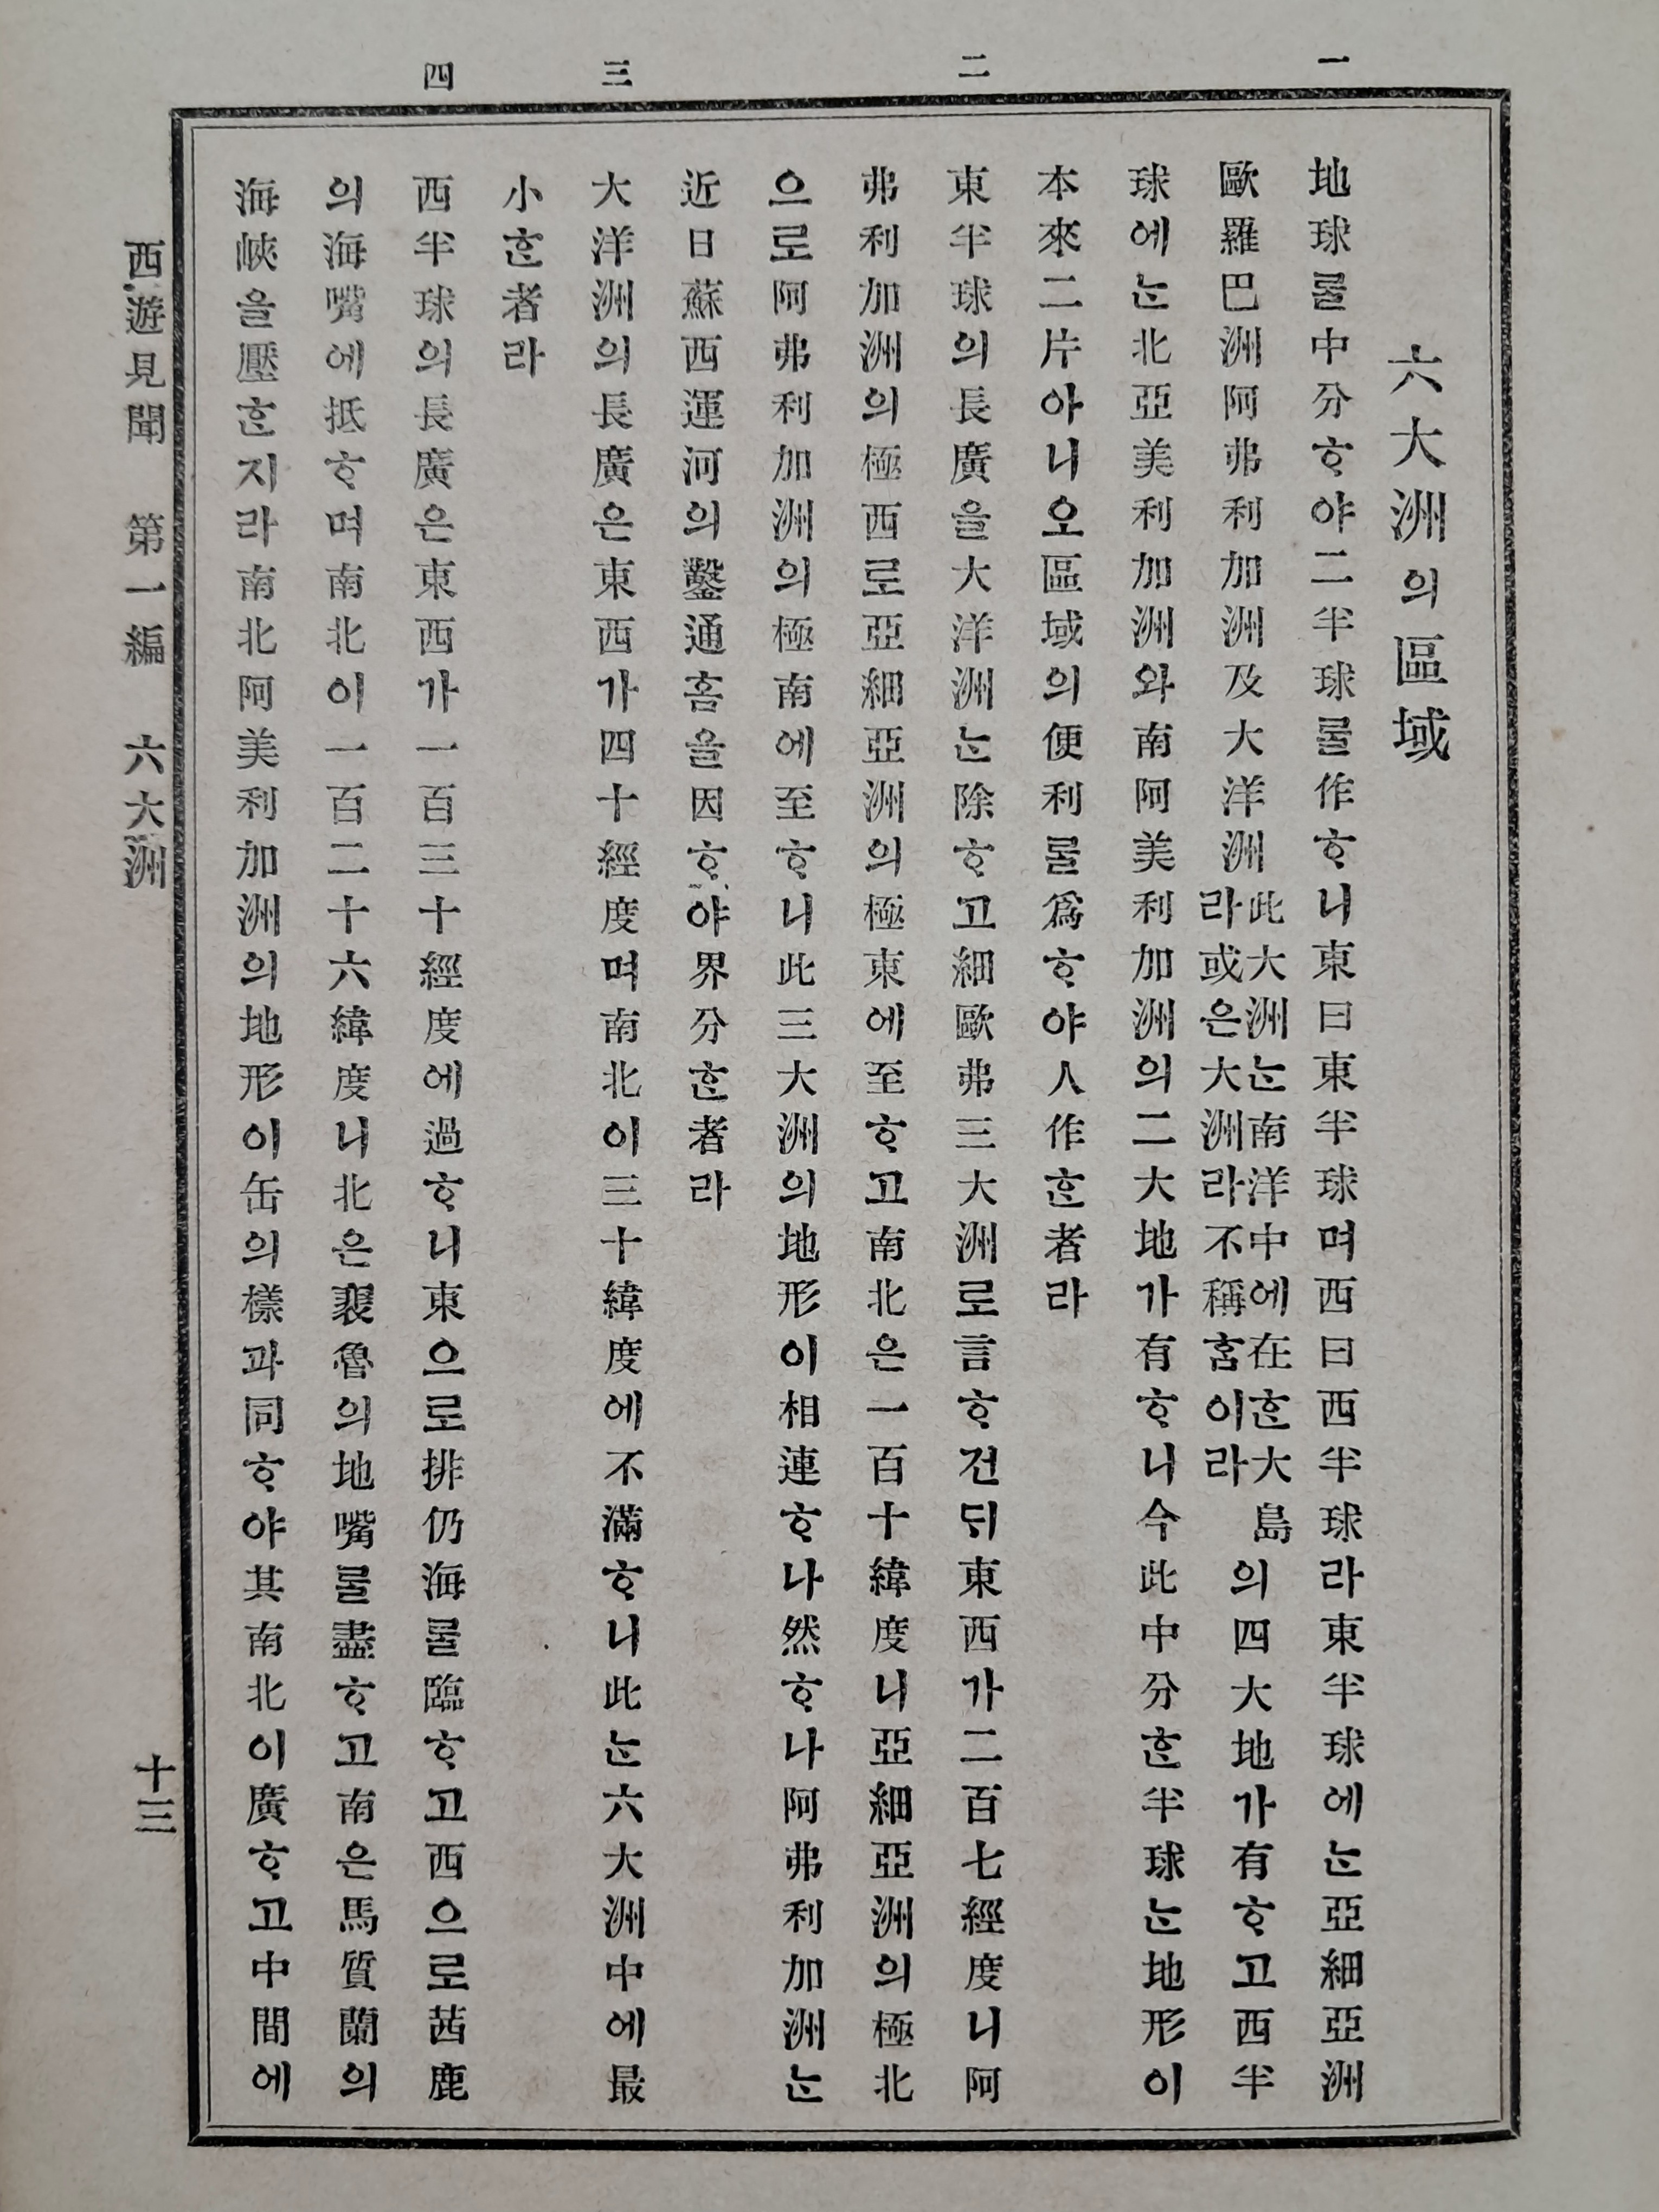 一
二
三
四
六大洲의區域
地球ᄅᆞᆯ中分ᄒᆞ야二半球ᄅᆞᆯ作ᄒᆞ니東曰東半球며西曰西半球라東半球에ᄂᆞᆫ亞細亞洲
歐羅巴洲阿弗利加洲及大洋洲此大洲ᄂᆞᆫ南洋中에在ᄒᆞᆫ大島라或은大洲라不稱ᄒᆞᆷ이라의四大地가有ᄒᆞ고西半
球에ᄂᆞᆫ北亞美利加洲와南阿美利加洲의二大地가有ᄒᆞ니今此中分ᄒᆞᆫ半球ᄂᆞᆫ地形이
本來二片아니오區域의便利ᄅᆞᆯ爲ᄒᆞ야人作ᄒᆞᆫ者라
東半球의長廣을大洋洲ᄂᆞᆫ除ᄒᆞ고細歐弗三大洲로言ᄒᆞ건ᄃᆡ東西가二百七經度니阿
弗利加洲의極西로亞細亞洲의極東에至ᄒᆞ고南北은一百十緯度니亞細亞洲의極北
으로阿弗利加洲의極南에至ᄒᆞ니此三大洲의地形이相連ᄒᆞ나然ᄒᆞ나阿弗利加洲ᄂᆞᆫ
近日蘇西運河의鑿通홈을因ᄒᆞ야界分ᄒᆞᆫ者라
大洋洲의長廣은東西가四十經度며南北이三十緯度에不滿ᄒᆞ니此ᄂᆞᆫ六大洲中에最
小ᄒᆞᆫ者라
西半球의長廣은東西가一百三十經度에過ᄒᆞ니東으로排仍海ᄅᆞᆯ臨ᄒᆞ고西으로茜鹿
의海嘴에抵ᄒᆞ며南北이一百二十六緯度니北은裵魯의地嘴ᄅᆞᆯ盡ᄒᆞ고南은馬質蘭의
海峽을壓ᄒᆞᆫ지라南北阿美利加洲의地形이缶의樣과同ᄒᆞ야其南北이廣ᄒᆞ고中間에
西遊見聞 第一編 六大洲 十三